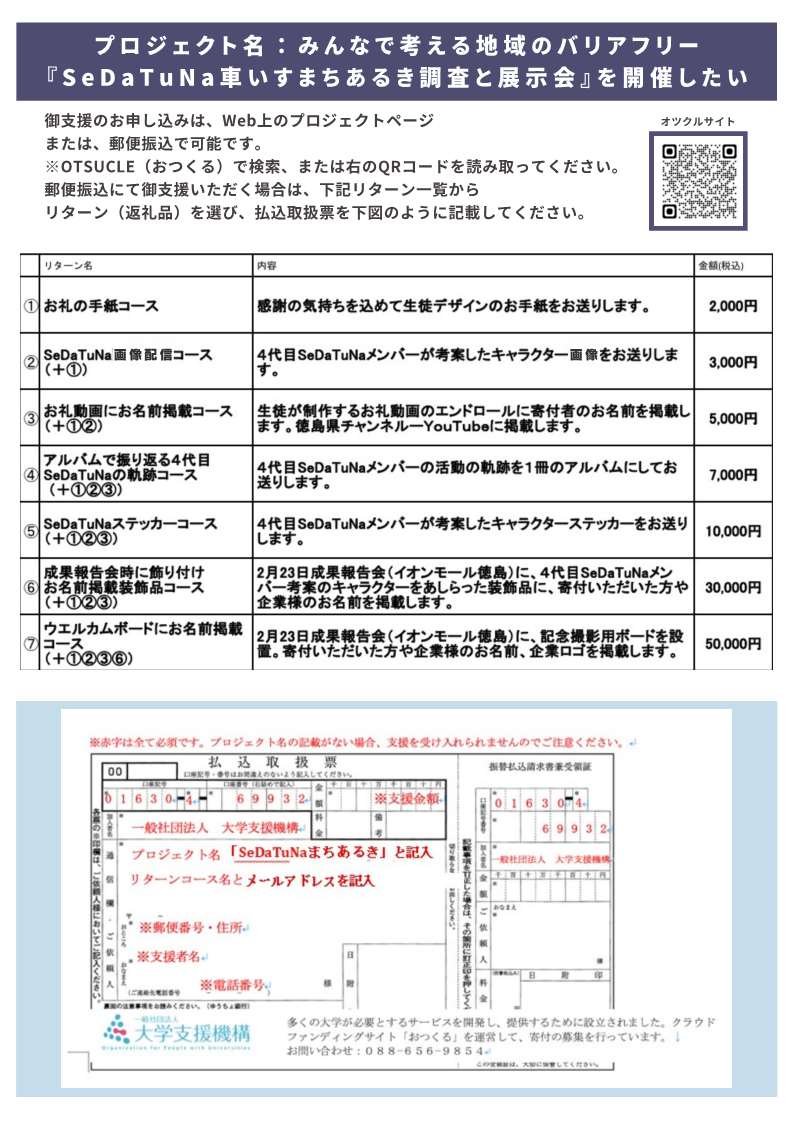 プロジェクト名：みんなで考える地域のバリアフリー
『SeDaTuNa車いすまちあるき調査と展示会』を開催したい
御支援のお申し込みは、Web上のプロジェクトページ
または、郵便振込で可能です。
※OTSUCLE（おつくる）で検索、または右のQRコードを読み取ってください。
郵便振込にて御支援いただく場合は、下記リターン一覧から
リターン（返礼品）を選び、払込取扱票を下図のように記載してください。
オツクルサイト
リターン名 内容 金額(税込)
① お礼の手紙コース 感謝の気持ちを込めて生徒デザインのお手紙をお送りします。 2,000円
② SeDaTuNa画像配信コース
（＋①）
４代目SeDaTuNaメンバーが考案したキャラクター画像をお送りしま
す。
3,000円
③ お礼動画にお名前掲載コース
（＋①②）
生徒が制作するお礼動画のエンドロールに寄付者のお名前を掲載し
ます。徳島県チャンネルーYouTubeに掲載します。
5,000円
④ アルバムで振り返る４代目
SeDaTuNaの軌跡コース
（＋①②③）
４代目SeDaTuNaメンバーの活動の軌跡を１冊のアルバムにしてお
送りします。
7,000円
⑤ SeDaTuNaステッカーコース
（＋①②③）
４代目SeDaTuNaメンバーが考案したキャラクターステッカーをお送り
します。
10,000円
⑥ 成果報告会時に飾り付け
お名前掲載装飾品コース
（＋①②③）
2月23日成果報告会（イオンモール徳島）に、４代目SeDaTuNaメン
バー考案のキャラクターをあしらった装飾品に、寄付いただいた方や
企業様のお名前を掲載します。
30,000円
⑦ ウエルカムボードにお名前掲載
コース
（＋①②③⑥）
2月23日成果報告会（イオンモール徳島）に、記念撮影用ボードを設
置。寄付いただいた方や企業様のお名前、企業ロゴを掲載します。
50,000円
※赤字は全て必須です。プロジェクト名の記載がない場合、支援を受け入れられませんのでご注意ください。
払込取扱票
00
口座記号・番号はお間違えのないよう記入してください。
口座記号 口座番号（右詰めで記入）
01630-4- 69932
金額
千百十万千百十円
※支援金額
加入者名
一般社団法人 大学支援機構
料金
備考
通信欄・ご依頼人
プロジェクト名「SeDaTuNaまちあるき」と記入
リターンコース名とメールアドレスを記入
〒
おところ
※郵便番号・住所
おなまえ
※支援者名
（ご連絡先電話番号）
※電話番号
様
日附
各票の※印欄は、ご依頼人様においてご記入ください。
裏面の注意事項をお読みください。（ゆうちょ銀行）
記載事項を訂正した場合は、その箇所に訂正印を押してく
振替払込請求書兼受領証
口座記号番号
01630-4
69932
加入者名
一般社団法人 大学支援機構
金額
千百十万千百十円
ご依頼人
おなまえ
様
料金
日附印
一般社団法人
大学支援機構
Organization for People with Universities
多くの大学が必要とするサービスを開発し、提供するために設立されました。クラウド
ファンディングサイト「おつくる」を運営して、寄付の募集を行っています。
お問い合わせ：088-656-9854
この受領証は、大切に保管してください。